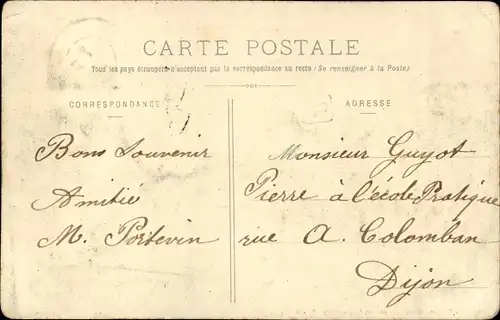 CARTE POSTALE
Tous les pays étrangers n'acceptent pas la correspondance au recto (Se renseigner à la Poste)
CORRESPONDANCE
ADRESSE
Bons Souvenir
Amitié
M. Portevin
Monsieur Guyot
Pierre à l'école Pratique
rue A. Colomban
Dijon